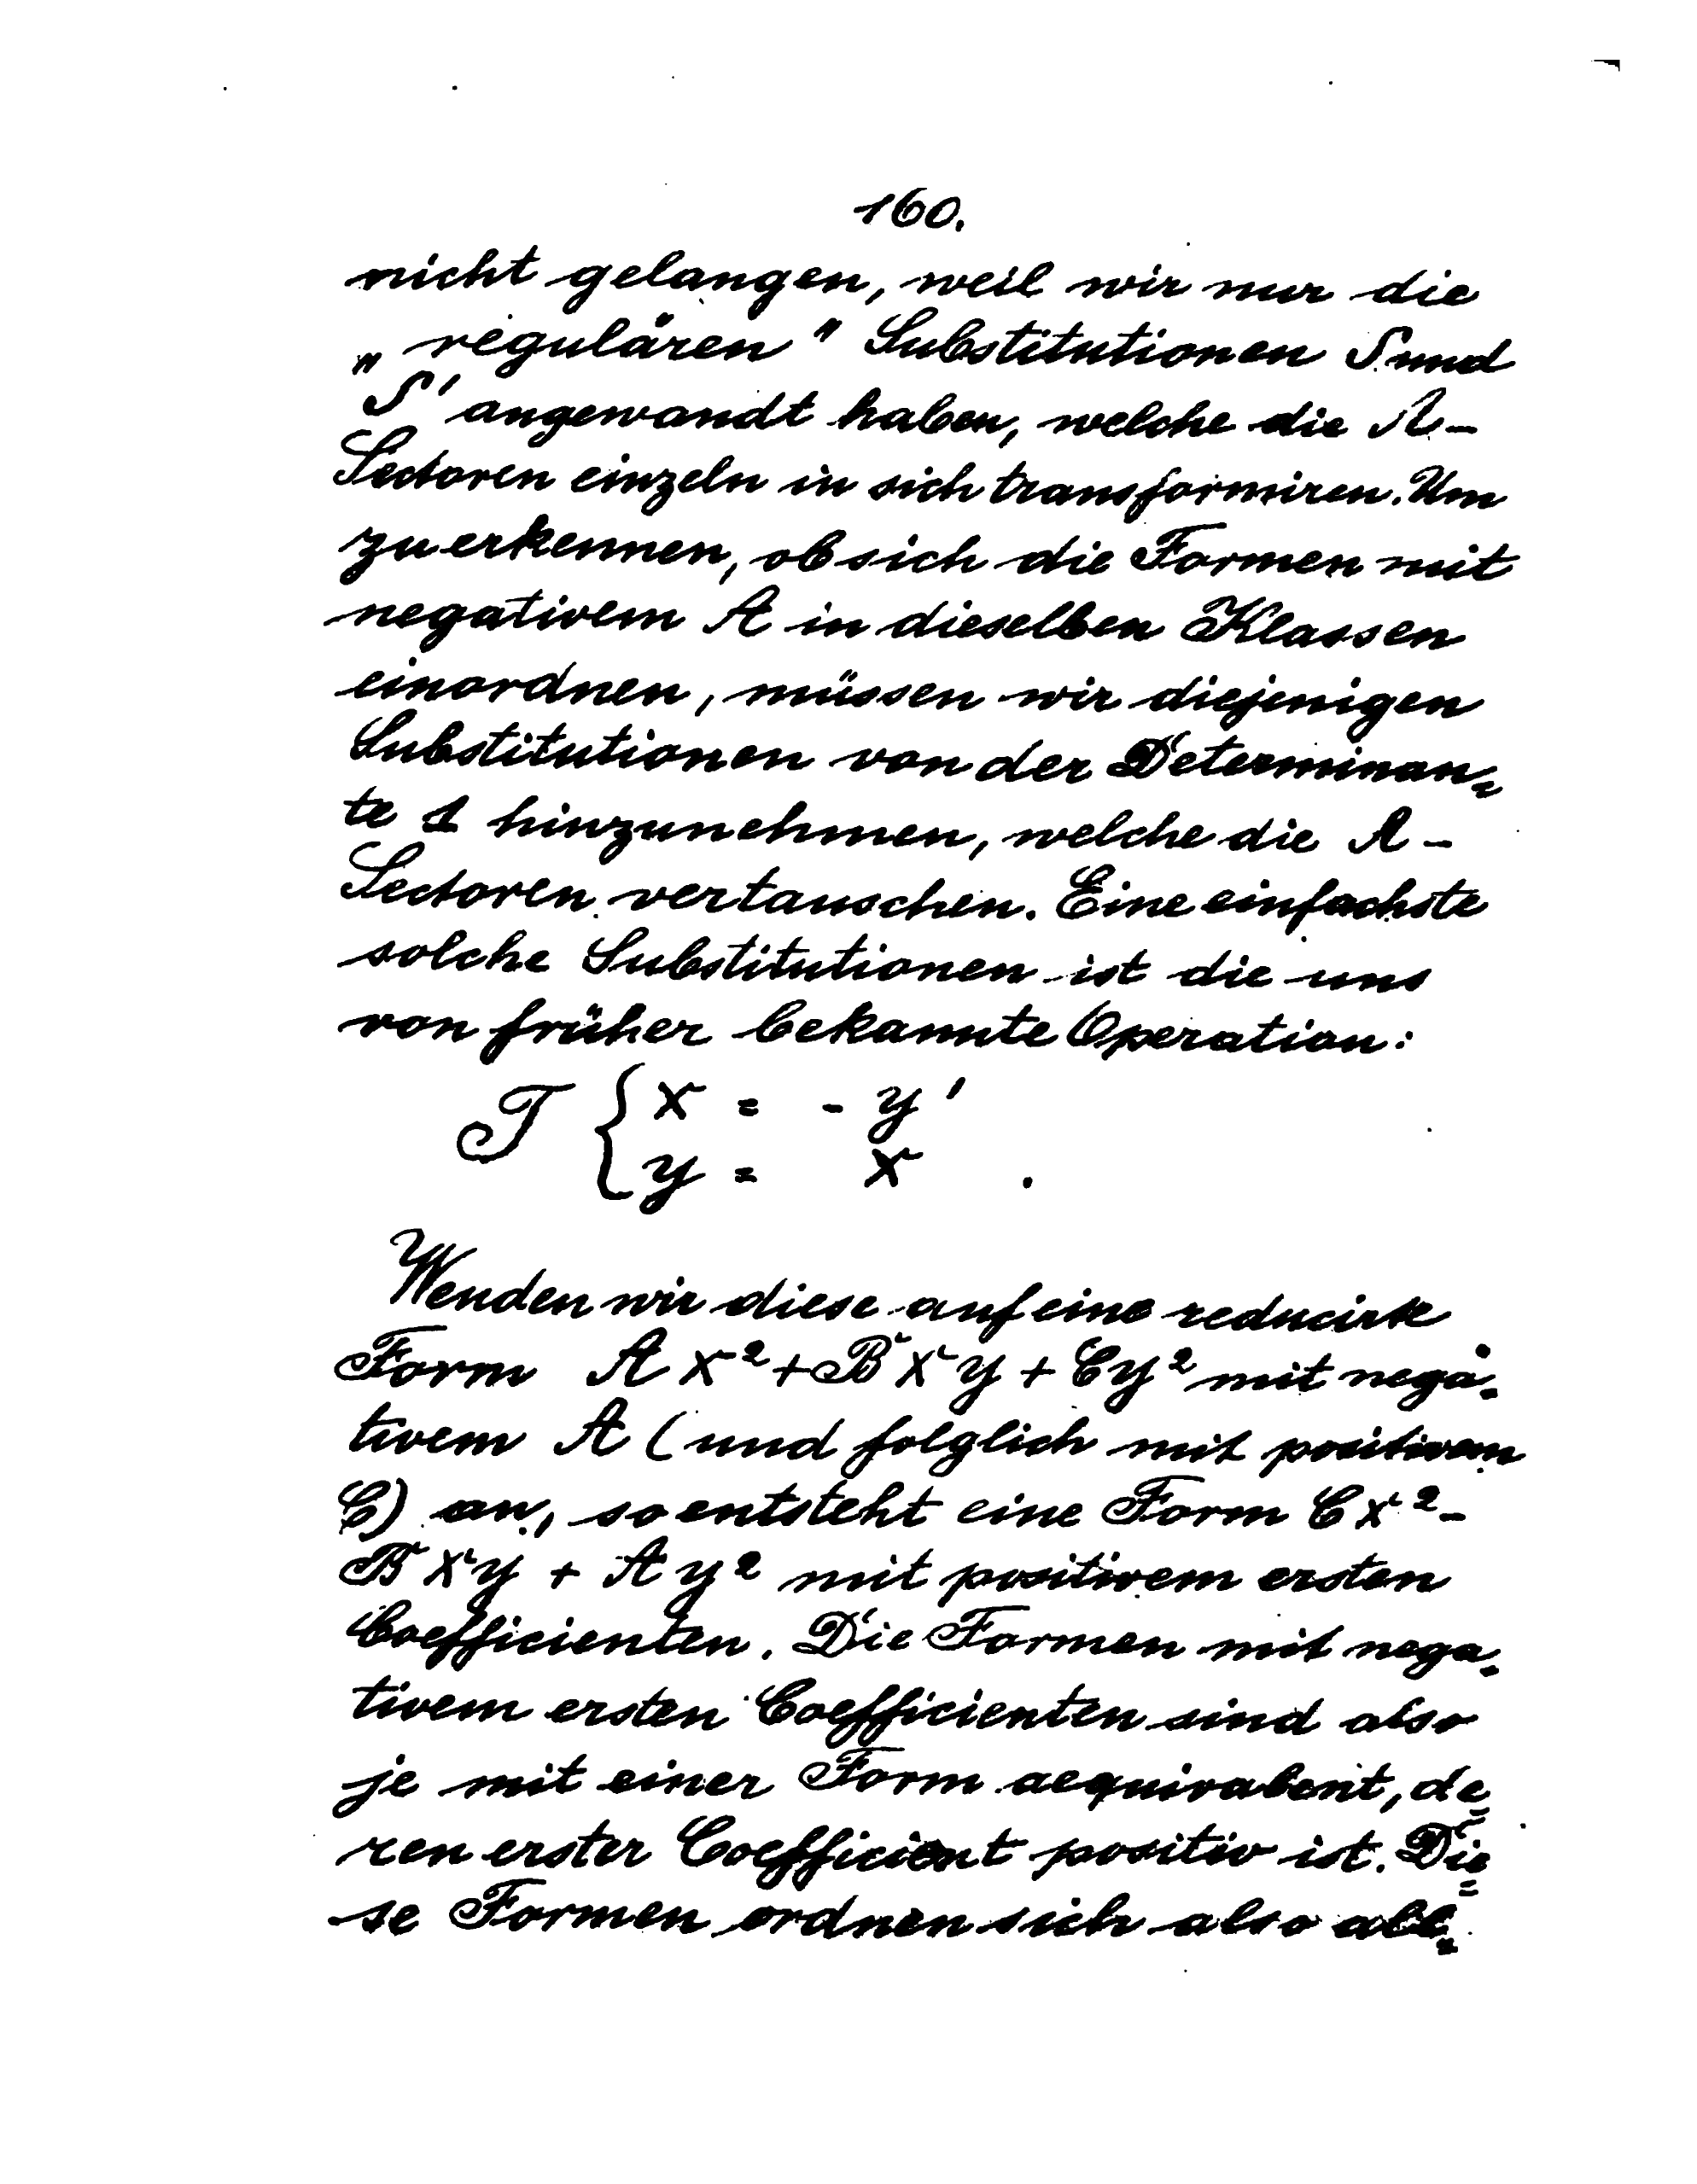 160.
nicht gelangen, weil wir nur die
„regulären" Substitutionen S und
S' angewandt haben, welche die A-
Sectoren einzeln in sich transformiren. Um
zu erkennen, ob sich die Formen mit
negativem A in dieselben Klassen
einordnen, müssen wir diejenigen
Substitutionen von der Determinan=
te 1 hinzunehmen, welche die A-
Sectoren vertauschen. Eine einfachste
solche Substitutionen ist die uns
von früher bekannte Operation:
T { x = - y'
y = x .
Wenden wir diese auf eine reducirte
Form A x² + B x y + C y² mit nega=
tivem A (und folglich mit positivem
C) an, so entsteht eine Form C x² -
B x y + A y² mit positivem ersten
Coefficienten. Die Formen mit nega=
tivem ersten Coefficienten sind also
je mit einer Form aequivalent, de=
ren erster Coefficient positiv ist. Die=
se Formen ordnen sich also all=